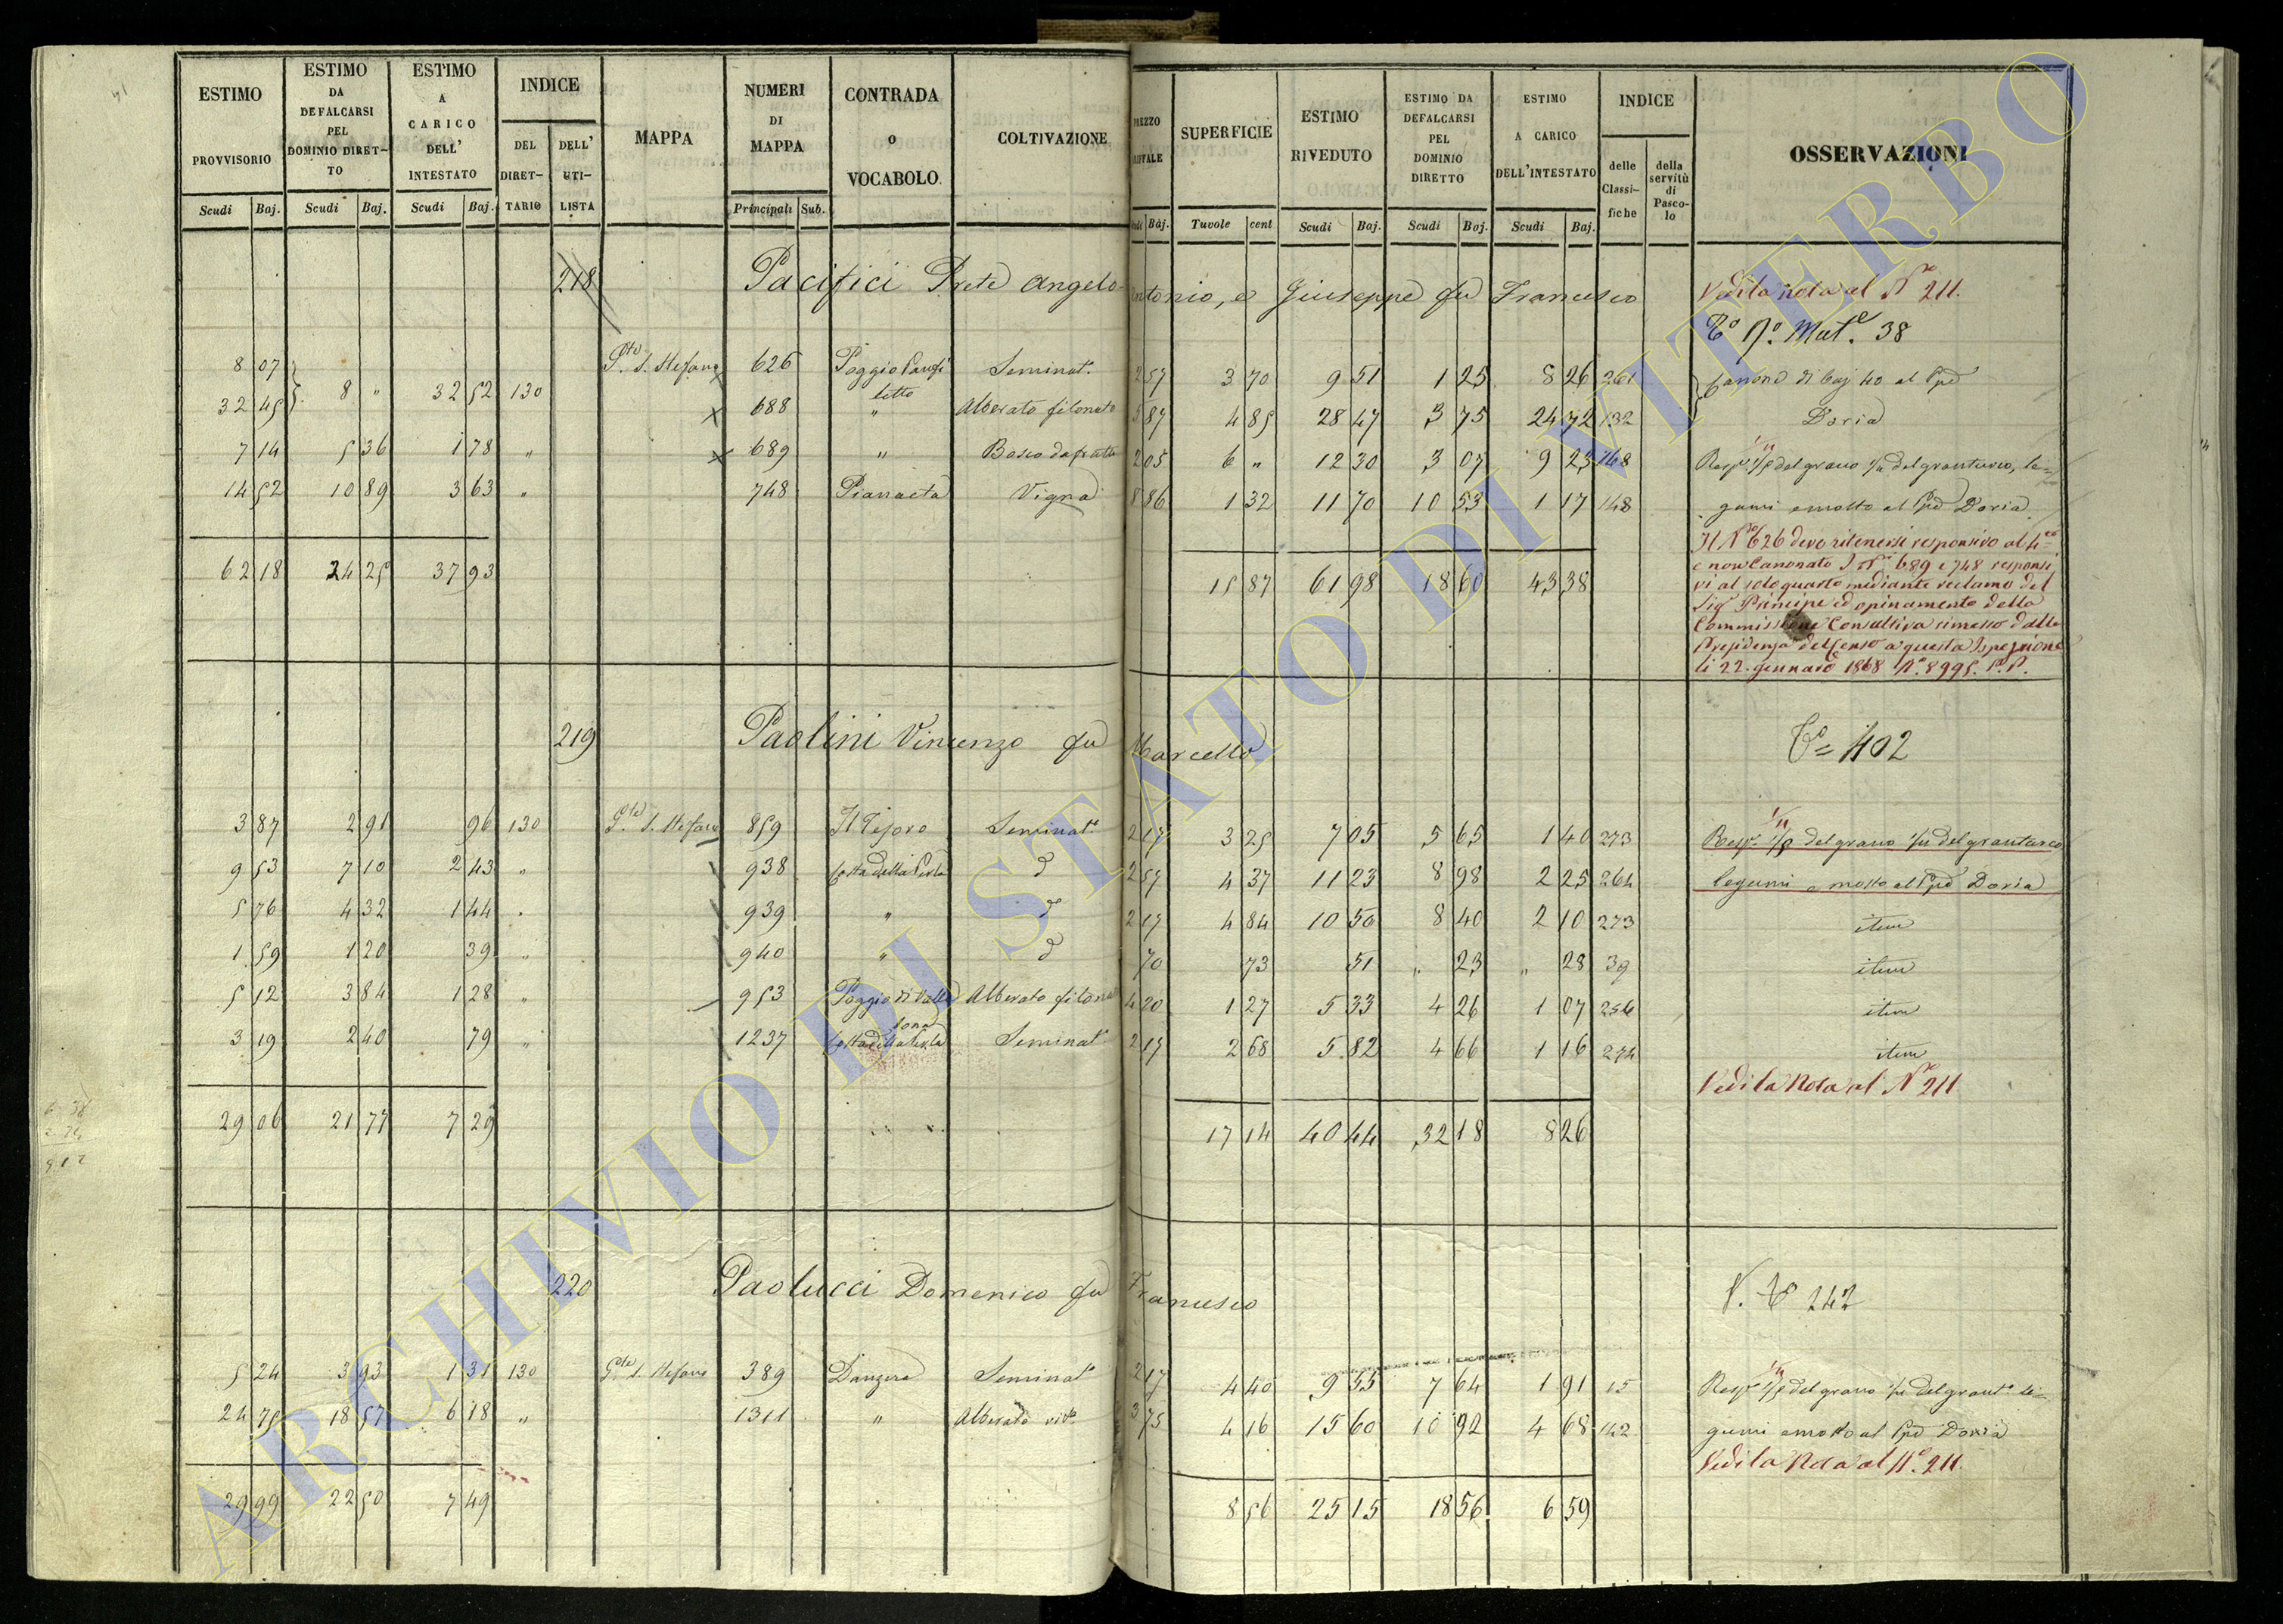 ESTIMO PROVVISORIO Scudi Baj.
ESTIMO DA DEFALCARSI PEL DOMINIO DIRETTO Scudi Baj.
ESTIMO A CARICO DELL' INTESTATO Scudi Baj.
INDICE DEL DIRETTARIO DELL' UTILISTA
MAPPA
NUMERI DI MAPPA Principali Sub.
CONTRADA o VOCABOLO
COLTIVAZIONE
SUPERFICIE Tavole cent
ESTIMO RIVEDUTO Scudi Baj.
ESTIMO DA DEFALCARSI PEL DOMINIO DIRETTO Scudi Baj.
ESTIMO A CARICO DELL'INTESTATO Scudi Baj.
INDICE delle Classifiche della servitù di Pascolo
OSSERVAZIONI
218 Pacifici Prete Angelo Antonio, e Giuseppe fu Francesco Vedi la nota al N° 211.
38
8 07 S. Stefano 626 Poggio Seminat. 2 57 3 70 9 51 1 25 8 26 261 Canone di baj 40 al Ppe
32 45 8 " 32 52 130 688 " Alberato filonato 5 87 4 85 28 47 3 75 24 72 132 Doria
7 14 5 36 1 78 " 689 " Bosco da frutto 2 05 6 " 12 30 3 07 9 23 168 Resp. 1/5 del grano 1/4 del granturco, le=
14 52 10 89 3 63 " 748 Pianaeta Vigna 8 86 1 32 11 70 10 53 1 17 148 gumi e mosto al Ppe Doria.
Il N° 626 deve ritenersi responsivo al 4to
e non Canonato I Ni 689 e 748 responsi
vi al solo quarto mediante reclamo del
Sigr Principe ed opinamento della
Commissione Consultiva rimesso dalla
Presidenza del Censo a questa Ispezione
li 22 gennaro 1868 N° 8995.
62 18 24 25 37 93 15 87 61 98 18 60 43 38
219 Paolini Vincenzo fu Marcello 402
3 87 2 91 96 130 S. Stefano 859 Il Tesoro Seminat. 2 17 3 25 7 05 5 65 1 40 273 Resp. 1/5 del grano 1/4 del granturco
9 53 7 10 2 43 " 938 Costa della d° 2 57 4 37 11 23 8 98 2 25 264 legumi e mosto al Ppe Doria
5 76 4 32 1 44 " 939 " d° 2 17 4 84 10 50 8 40 2 10 273 item
1 59 1 20 39 " 940 " d° 70 73 51 " 23 " 28 39 item
5 12 3 84 1 28 " 953 Poggio di Alberato filonato 4 20 1 27 5 33 4 26 1 07 256 item
3 19 2 40 79 " 1237 Costa della Seminat. 2 17 2 68 5 82 4 66 1 16 274 item
Vedi la Nota al N° 211
29 06 21 77 7 29 17 14 40 44 32 18 8 26
220 Paolucci Domenico fu Francesco 242
5 24 3 93 1 31 130 S. Stefano 389 Danzera Seminat. 2 17 4 40 9 55 7 64 1 91 15 Resp. 1/5 del grano 1/4 del grant. le=
24 75 18 57 6 18 " 1311 " Alberato vit. 3 75 4 16 15 60 10 92 4 68 142 gumi e mosto al Ppe Doria
Vedi la Nota al N°. 211.
29 99 22 50 7 49 8 56 25 15 18 56 6 59
ARCHIVIO DI STATO DI VITERBO